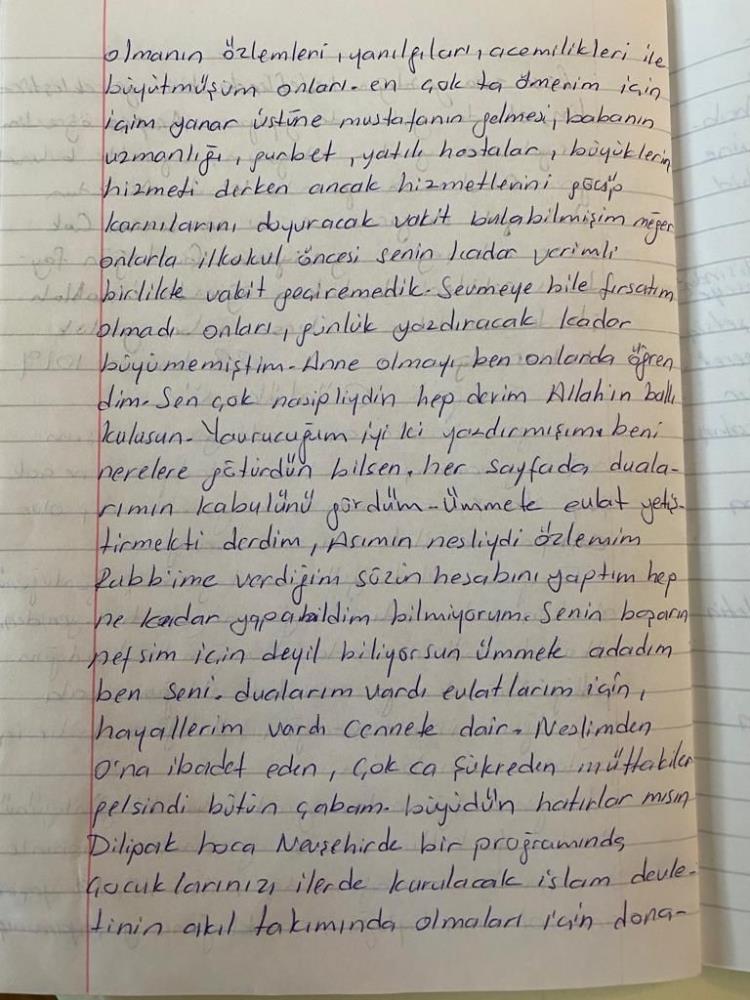 olmanın özlemleri, yanılgıları, acemilikleri ile
büyütmüşüm onları. en çok ta ömerim için
içim yanar üstüne mustafanın gelmesi, babanın
uzmanlığı, gurbet, yatılı hastalar, büyüklerin
hizmeti derken ancak hizmetlerini görüp
karnılarını doyuracak vakit bulabilmişim meğer
onlarla ilkokul öncesi senin kadar verimli
birlikte vakit geçiremedik. Sevmeye bile fırsatım
olmadı onları, günlük yazdıracak kadar
büyümemiştim. Anne olmayı ben onlarda öğren
dim. Sen çok nasipliydin hep derim Allah'ın ballı
kulusun. Yavrucuğum iyi ki yazdırmışım. beni
nerelere götürdün bilsen. her sayfada duala-
rımın kabulünü gördüm. Ümmete evlat yetiş-
tirmekti derdim, Asımın nesliydi özlemim
Rabb'ime verdiğim sözün hesabını yaptım hep
ne kadar yapabildim bilmiyorum. Senin başarın
nefsim için deyil biliyorsun Ümmete adadım
ben seni. dualarım vardı evlatlarım için,
hayallerim vardı Cennete dair. Neslimden
O'na ibadet eden, çok ca şükreden müttakiler
gelsindi bütün çabam. büyüdün hatırlar mısın
Dilipak hoca Nevşehirde bir programında
çocuklarınızı ilerde kurulacak islam devle-
tinin akıl takımında olmaları için dona-